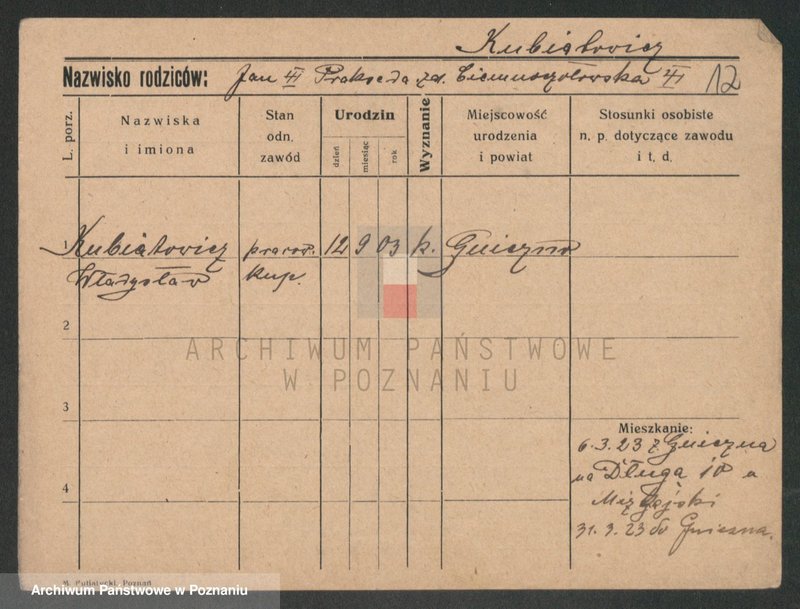 Kubiatowicz
Nazwisko rodziców: Jan Prakseda zd. 12
L. porz.
Nazwiska i imiona
Stan odn. zawód
Urodzin
dzień
miesiąc
rok
Wyznanie
Miejscowość urodzenia i powiat
Stosunki osobiste n. p. dotyczące zawodu i t. d.
1 Kubiatowicz pracow. 12 9 03 k. Gniezno
Władysław kup.
2
ARCHIWUM PAŃSTWOWE
W POZNANIU
3
Mieszkanie:
6.3.23 z Gniezna
na Długą 10 u
4
31.3.23 do Gniezna.
M. Putiatycki, Poznań
Archiwum Państwowe w Poznaniu